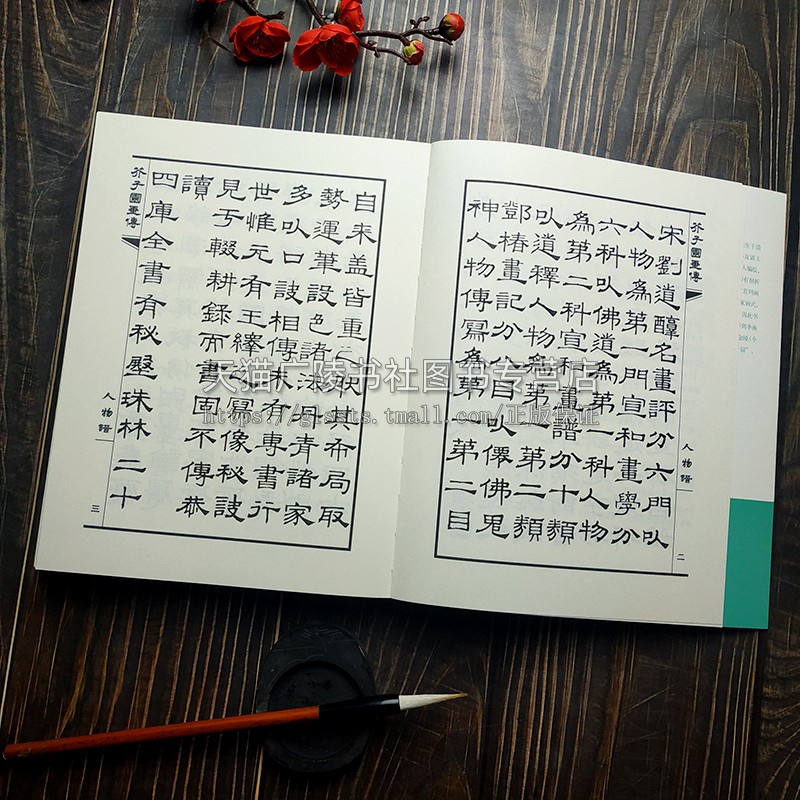 芥子園畫傳
人物譜
二
宋劉道醇名畫評分六門㠯
人物為第一門宣和畫學分
六科㠯佛道為第一科人物
為第二科宣和畫譜分十類
㠯道釋人物為第一第二類
鄧椿畫記分八目㠯僊佛鬼
神人物傳寫為第一第二目
自来蓋皆重之歟其布局取
勢運筆設色諸法丹青諸家
多㠯口訣相傳未有專書行
世惟元有王繹寫像秘訣
見于輟耕錄而書固不傳恭
讀
四庫全書有秘殿珠林二十
芥子園畫傳
人物譜
三
天猫广陵书社图书专营店
https://glssts.tmall.com/正版保证